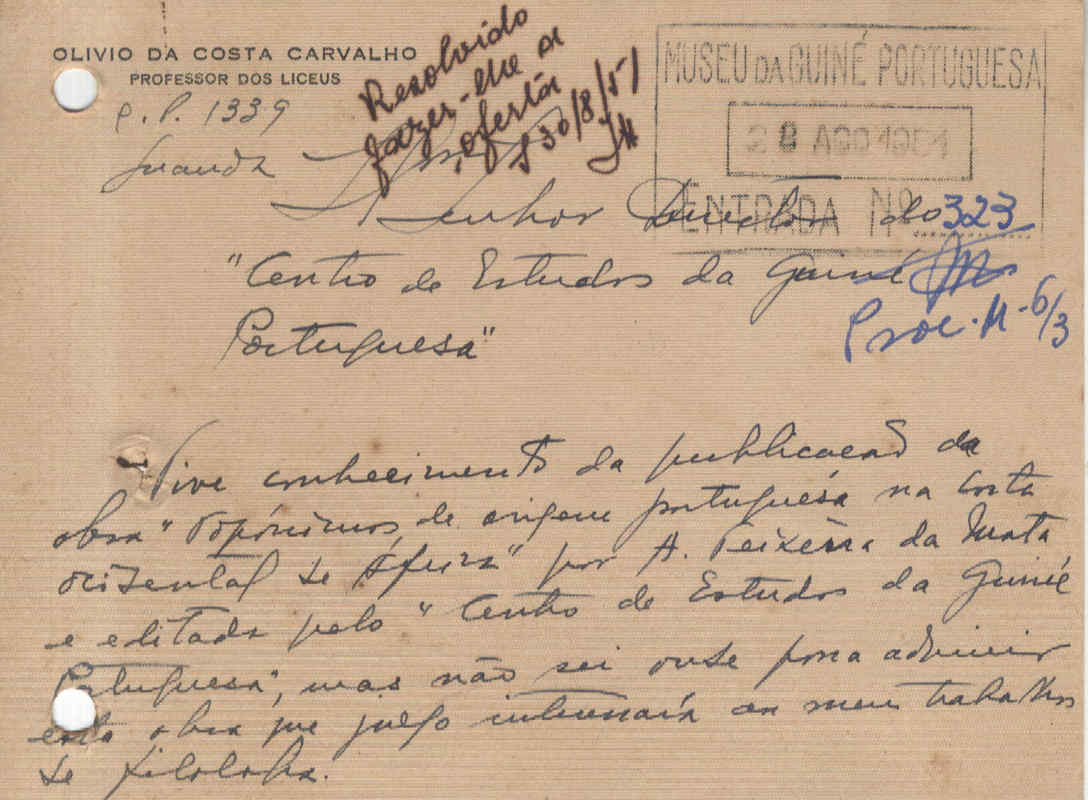 OLIVIO DA COSTA CARVALHO
PROFESSOR DOS LICEUS
C. P. 1339
Luanda
Resolvido
fazer-lhe a
oferta
30/8/51
MUSEU DA GUINÉ PORTUGUESA
28 AGO 1951
ENTRADA Nº 323
Proc. M-6/3
Senhor Director do
"Centro de Estudos da Guiné
Portuguesa"
Tive conhecimento da publicação da
obra "Topónimos de origem portuguesa na Costa
ocidental de África" por A. Teixeira da Mota
e editada pelo "Centro de Estudos da Guiné
Portuguesa", mas não sei onde possa adquirir
esta obra que julgo interessaria aos meus trabalhos
de filologia.